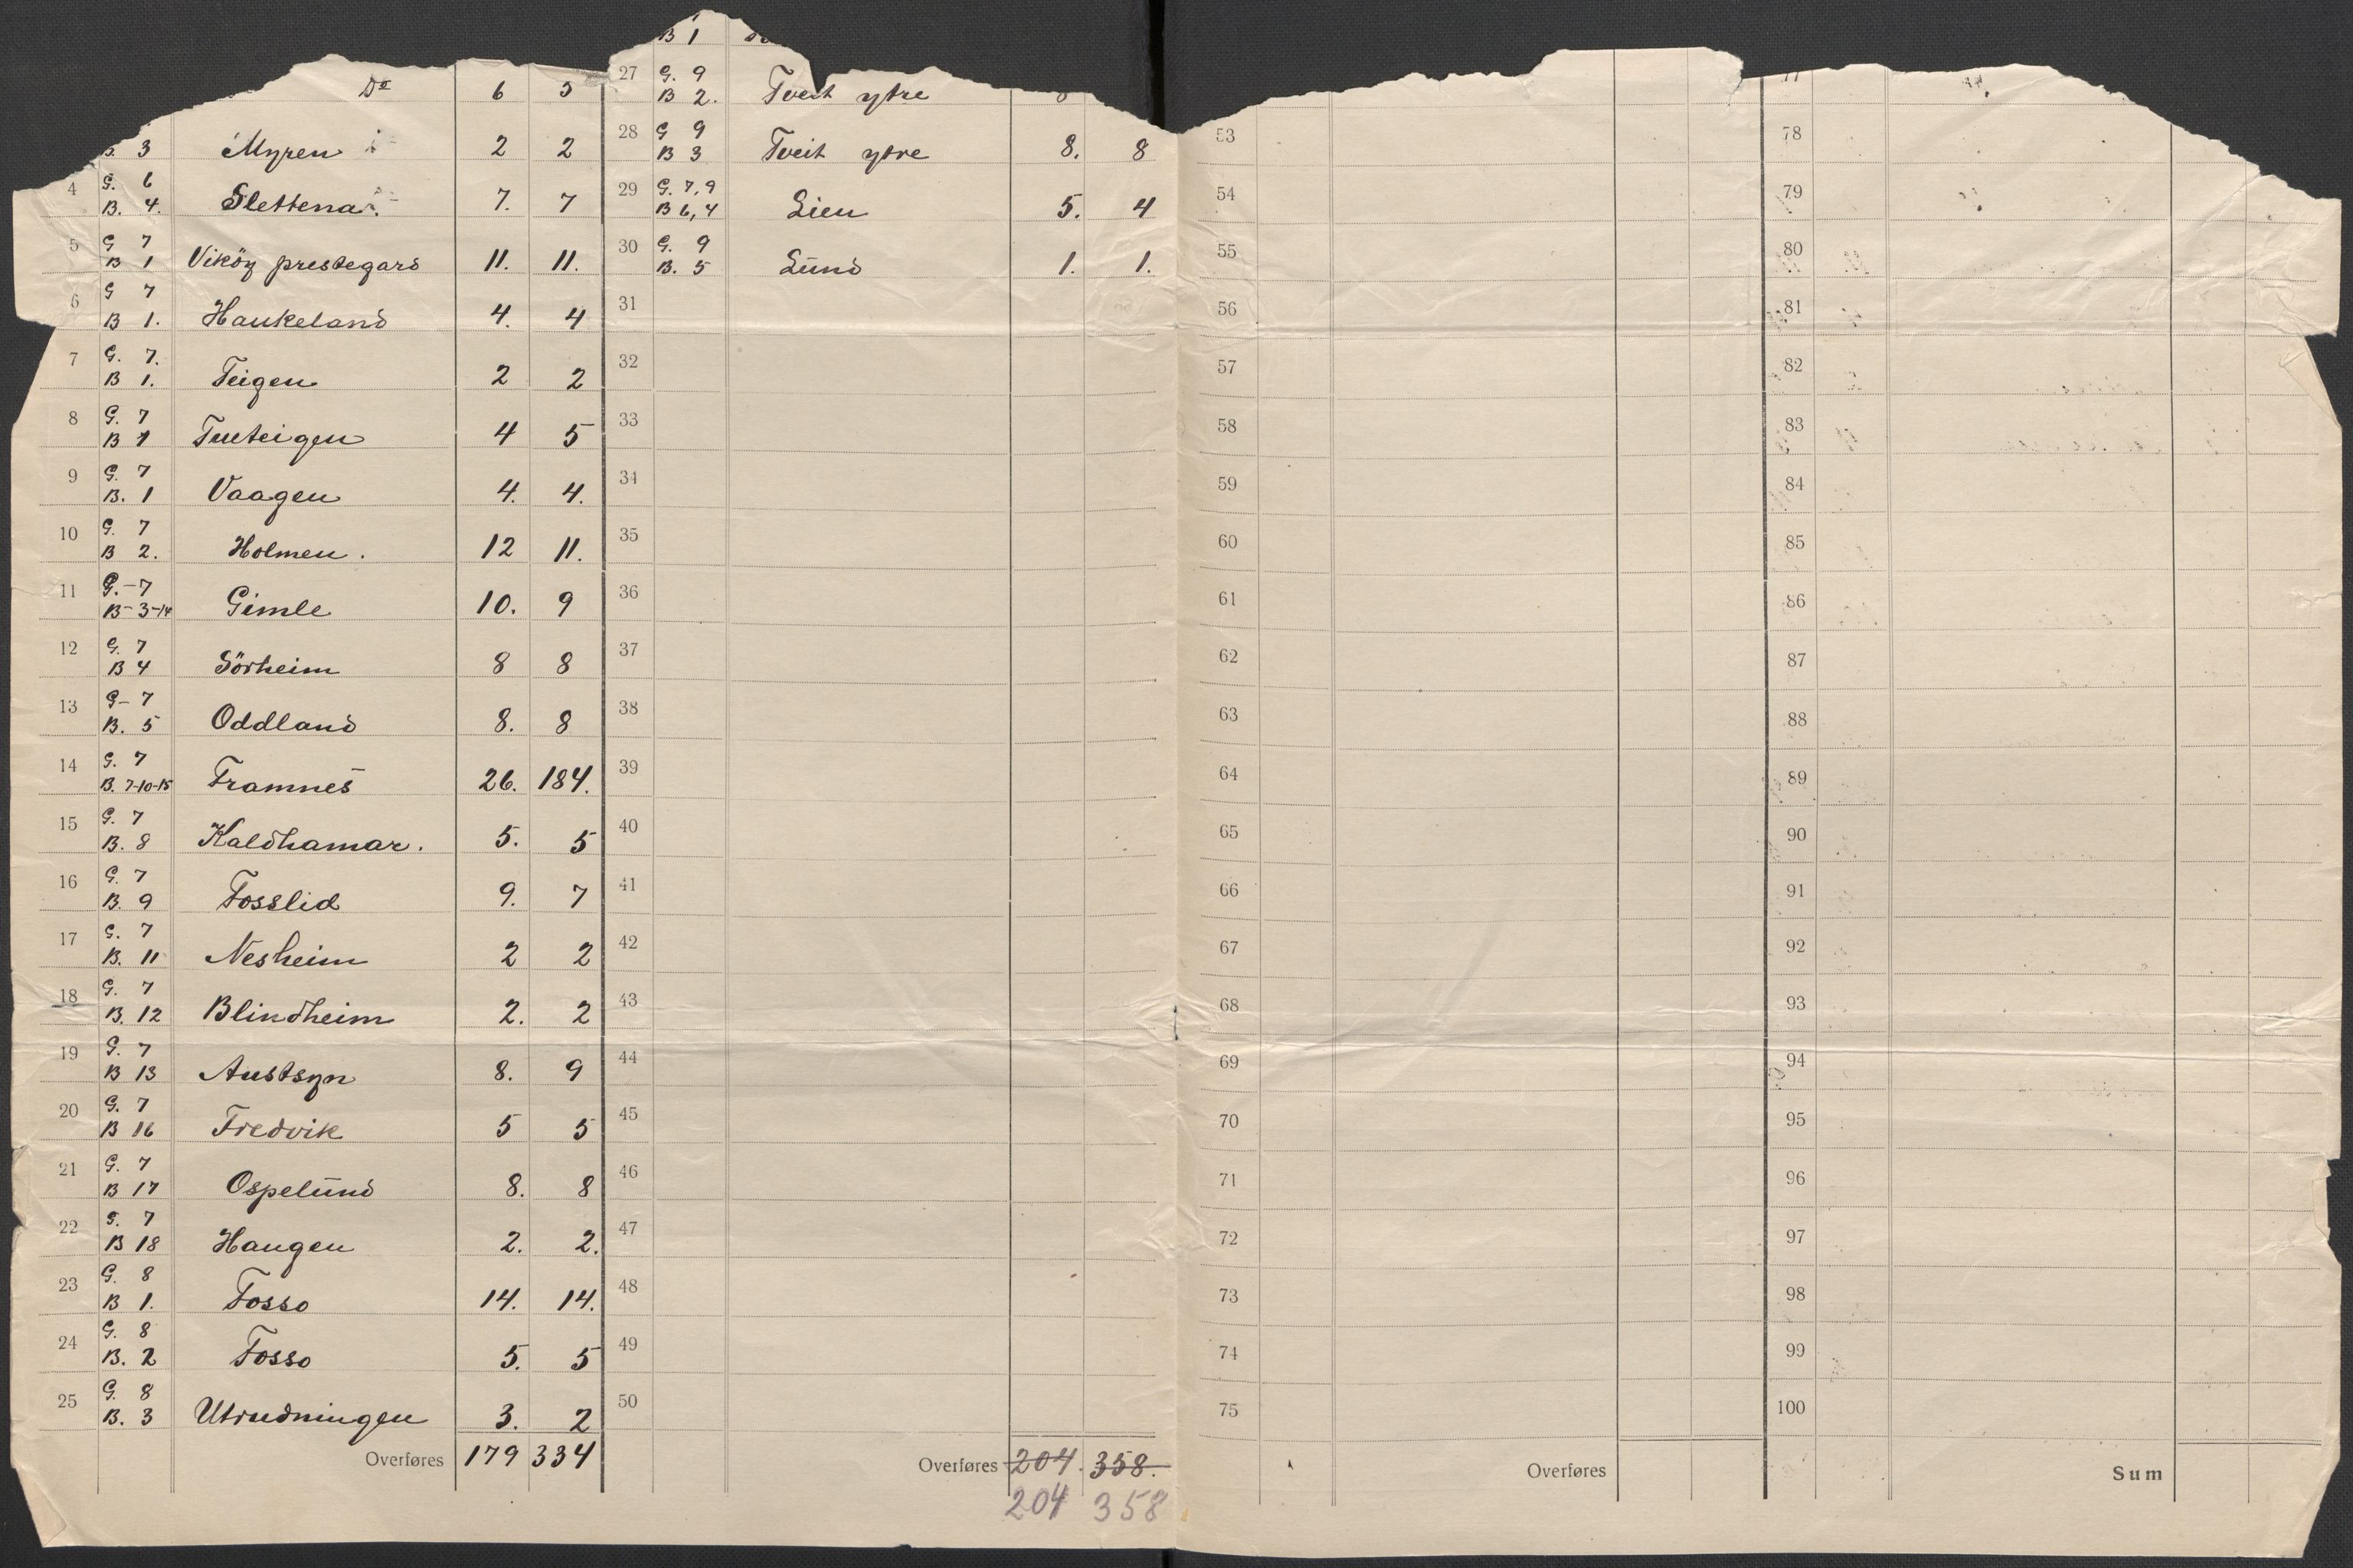 Do 6 5
3 Myren 2 2
4 G. 6 B. 4. Slettena 7. 7
5 G 7 B 1 Viköy prestegard 11. 11.
6 G 7 B 1. Haukeland 4. 4
7 G. 7. B 1. Teigen 2 2
8 G. 7 B 1 Tueteigen 4 5
9 G. 7 B. 1 Vaagen 4. 4.
10 G. 7 B 2. Holmen. 12 11.
11 G.-7 B-3-14 Gimle 10. 9
12 G. 7 B 4 Sörheim 8 8
13 G- 7 B. 5 Oddland 8. 8
14 G. 7 B. 7-10-15 Framnes 26. 184.
15 G. 7 B. 8 Kaldhamar. 5. 5
16 G. 7 B. 9 Fosslid 9. 7
17 G. 7 B. 11 Nesheim 2 2
18 G. 7 B. 12 Blindheim 2. 2
19 G. 7 B 13 Austsyn 8. 9
20 G. 7 B 16 Fredvik 5 5
21 G. 7 B 17 Ospelund 8. 8
22 G. 7 B 18 Haugen 2. 2.
23 G. 8 B 1. Fosso 14. 14.
24 G. 8 B. 2 Fosso 5. 5
25 G. 8 B. 3 Utrudningen 3. 2
Overføres 179 334
B 1
27 G. 9 B 2. Tveit ytre
28 G 9 B 3 Tveit ytre 8. 8
29 G. 7,9 B 6,4 Lien 5. 4
30 G. 9 B. 5 Lund 1. 1.
31
32
33
34
35
36
37
38
39
40
41
42
43
44
45
46
47
48
49
50
Overføres 204. 358.
204 358
53
54
55
56
57
58
59
60
61
62
63
64
65
66
67
68
69
70
71
72
73
74
75
Overføres
77
78
79
80
81
82
83
84
85
86
87
88
89
90
91
92
93
94
95
96
97
98
99
100
Sum